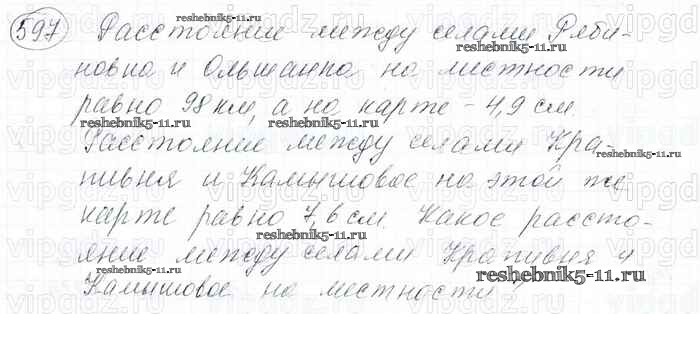 597 Расстояние между селами Ряби-
reshebnik5-11.ru reshebnik5-11.ru
новка и Ольшанка на местности
равно 98 км, а на карте - 4,9 см.
reshebnik5-11.ru reshebnik5-11.ru
Расстояние между селами Кра-
reshebnik5-11.ru
пивня и Камышовое на этой же
карте равно 7,6 см. Какое рассто-
reshebnik5-11.ru
яние между селами Крапивня и
reshebnik5-11.ru reshebnik5-11.ru
Камышовое на местности?